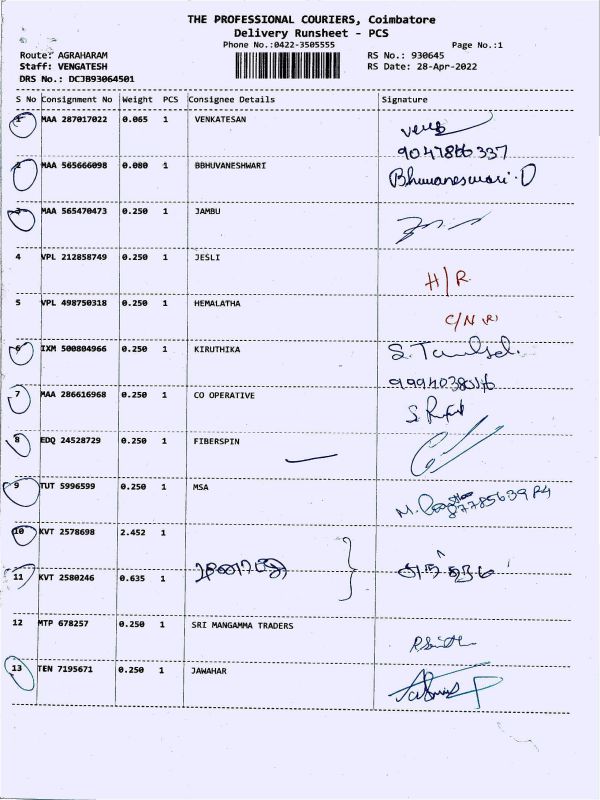 THE PROFESSIONAL COURIERS, Coimbatore
Delivery Runsheet - PCS
Phone No.:0422-3505555 Page No.:1
Route: AGRAHARAM RS No.: 930645
Staff: VENGATESH RS Date: 28-Apr-2022
DRS No.: DCJB93064501
S No Consignment No Weight PCS Consignee Details Signature
1 MAA 287017022 0.065 1 VENKATESAN
9047866337
2 MAA 565666098 0.080 1 BBHUVANESHWARI Bhuvaneswari.D
3 MAA 565470473 0.250 1 JAMBU
4 VPL 212858749 0.250 1 JESLI H/R
5 VPL 498750318 0.250 1 HEMALATHA C/N
6 IXM 500804966 0.250 1 KIRUTHIKA
7 MAA 286616968 0.250 1 CO OPERATIVE
8 EDQ 24528729 0.250 1 FIBERSPIN
9 TUT 5996599 0.250 1 MSA
10 KVT 2578698 2.452 1
11 KVT 2580246 0.635 1
12 MTP 678257 0.250 1 SRI MANGAMMA TRADERS
13 TEN 7195671 0.250 1 JAWAHAR